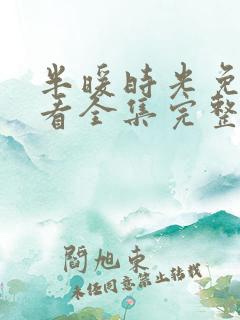 半暖时光免
看全集完整
閻旭东
未经同意禁止转载